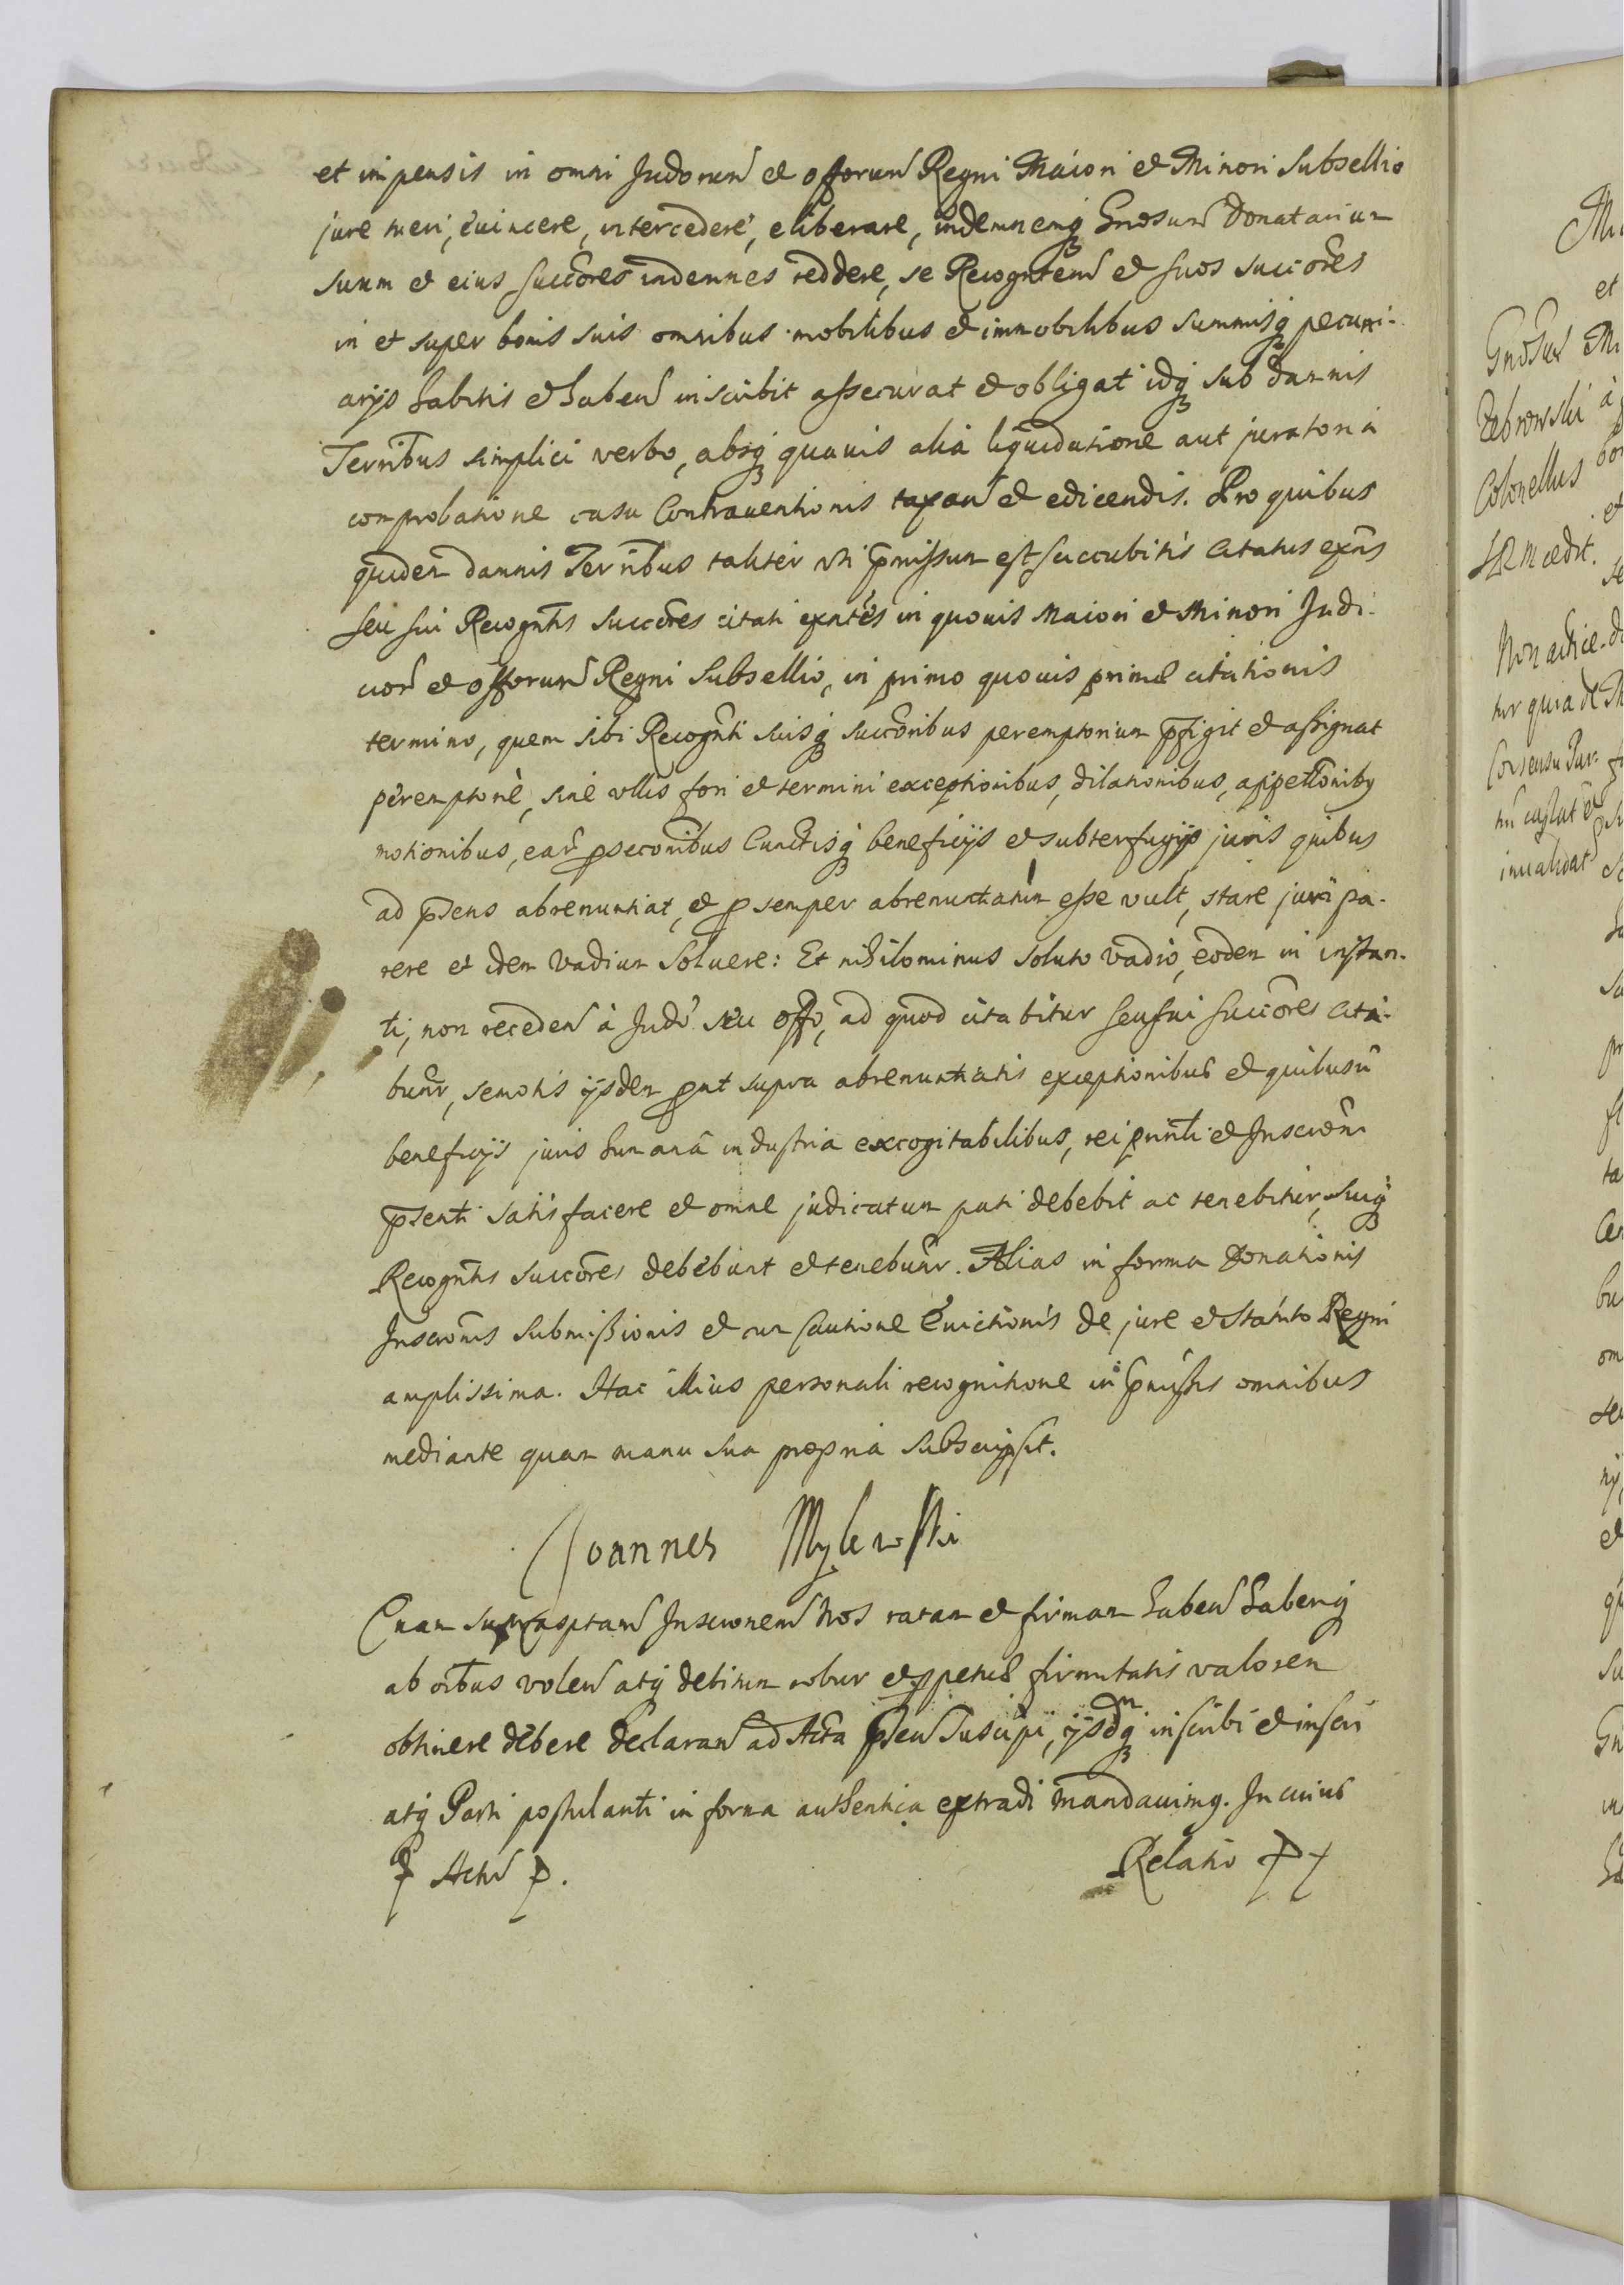 et impensis in omni Judorum et offorum Regni Maiori et Minori Subsellio
jure tueri, euincere, intercedere, eliberare, indemnemq Gnosum Donatarium
suum et eius succores indemnes reddere, se Recognten et suos succores
in et super bonis suis omnibus mobilibus et immobilibus summisq pecuni-
arijs habitis et haben inscribit assecurat et obligat idq sub damnis
Terribus simplici verbo, absq quauis alia liquidatione aut juratoria
comprobatione casu Contrauentionis taxan et edicendis. Pro quibus
quidem damnis Terribus taliter uti pmissum est succubitis Citatus exns
seu sui Recogntis succores citati exntes in quouis Maiori et Minori Judi-
cior et offorum Regni Subsellio, in primo quouis primæ citationis
termino, quem sibi Recognti suisq succoribus peremptorium pfigit et assignat
peremptoriè, sine ullis fori et termini exceptionibus, dilationibus, appellonibq
motionibus, ear pseconibus Cunctisq beneficijs et subterfugijs juris quibus
ad psens abrenuntiat, et p semper abrenuntiatum esse vult, stare juri pa-
rere et idem vadium soluere: Et nihilominus soluto vadio, eodem in instan-
ti, non receden à Judo seu offo, ad quod citabitur seu sui succores cita-
bunr, semotis ijsdem put supra abrenuntiatis exceptionibus et quibusu
beneficijs juris humanâ industria excogitabilibus, rei prinli et Inscrôni
psenti satisfacere et omne judicatum pati debebit ac tenebitur, suiq
Recogntis succores debebunt et tenebunr. Alias in forma Donationis
Inscronis Submissionis et cum Cautione Euictionis de jure et Statuto Regni
amplissima. Hac illius personali recognitione in pmissis omnibus
mediante quam manu sua propria subscripsit.
Joannes Mylewski
Quam suprascptam Inscronem Nos ratam et firmam haben haberiq
ab oibus volen atq debitum robur et ppetuæ firmitatis valorem
obtinere debere declaran ad Acta psen suscipi, ijsdmq inscribi et inseri
atq Parti postulanti in forma authentica extradi mandauimq. In cuius
Actu
Relatio
et
Gnosus
Zebrowski
Colonellus